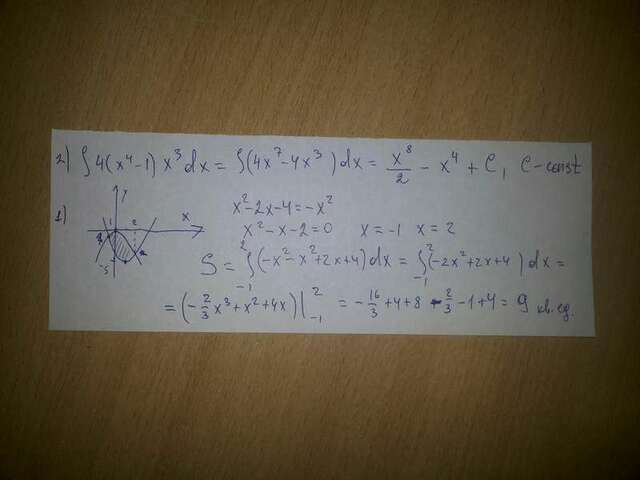 2) ∫4(x⁴-1) x³dx = ∫(4x⁷-4x³)dx = x⁸/2 - x⁴ + C, C-const
1)
y
x
1 2
-5
x²-2x-4=-x²
x²-x-2=0 x=-1 x=2
S = ∫₋₁² (-x²-x²+2x+4)dx = ∫₋₁² (-2x²+2x+4)dx =
= (-2/3 x³+x²+4x)|₋₁² = -16/3+4+8-2/3-1+4= 9 кв.ед.